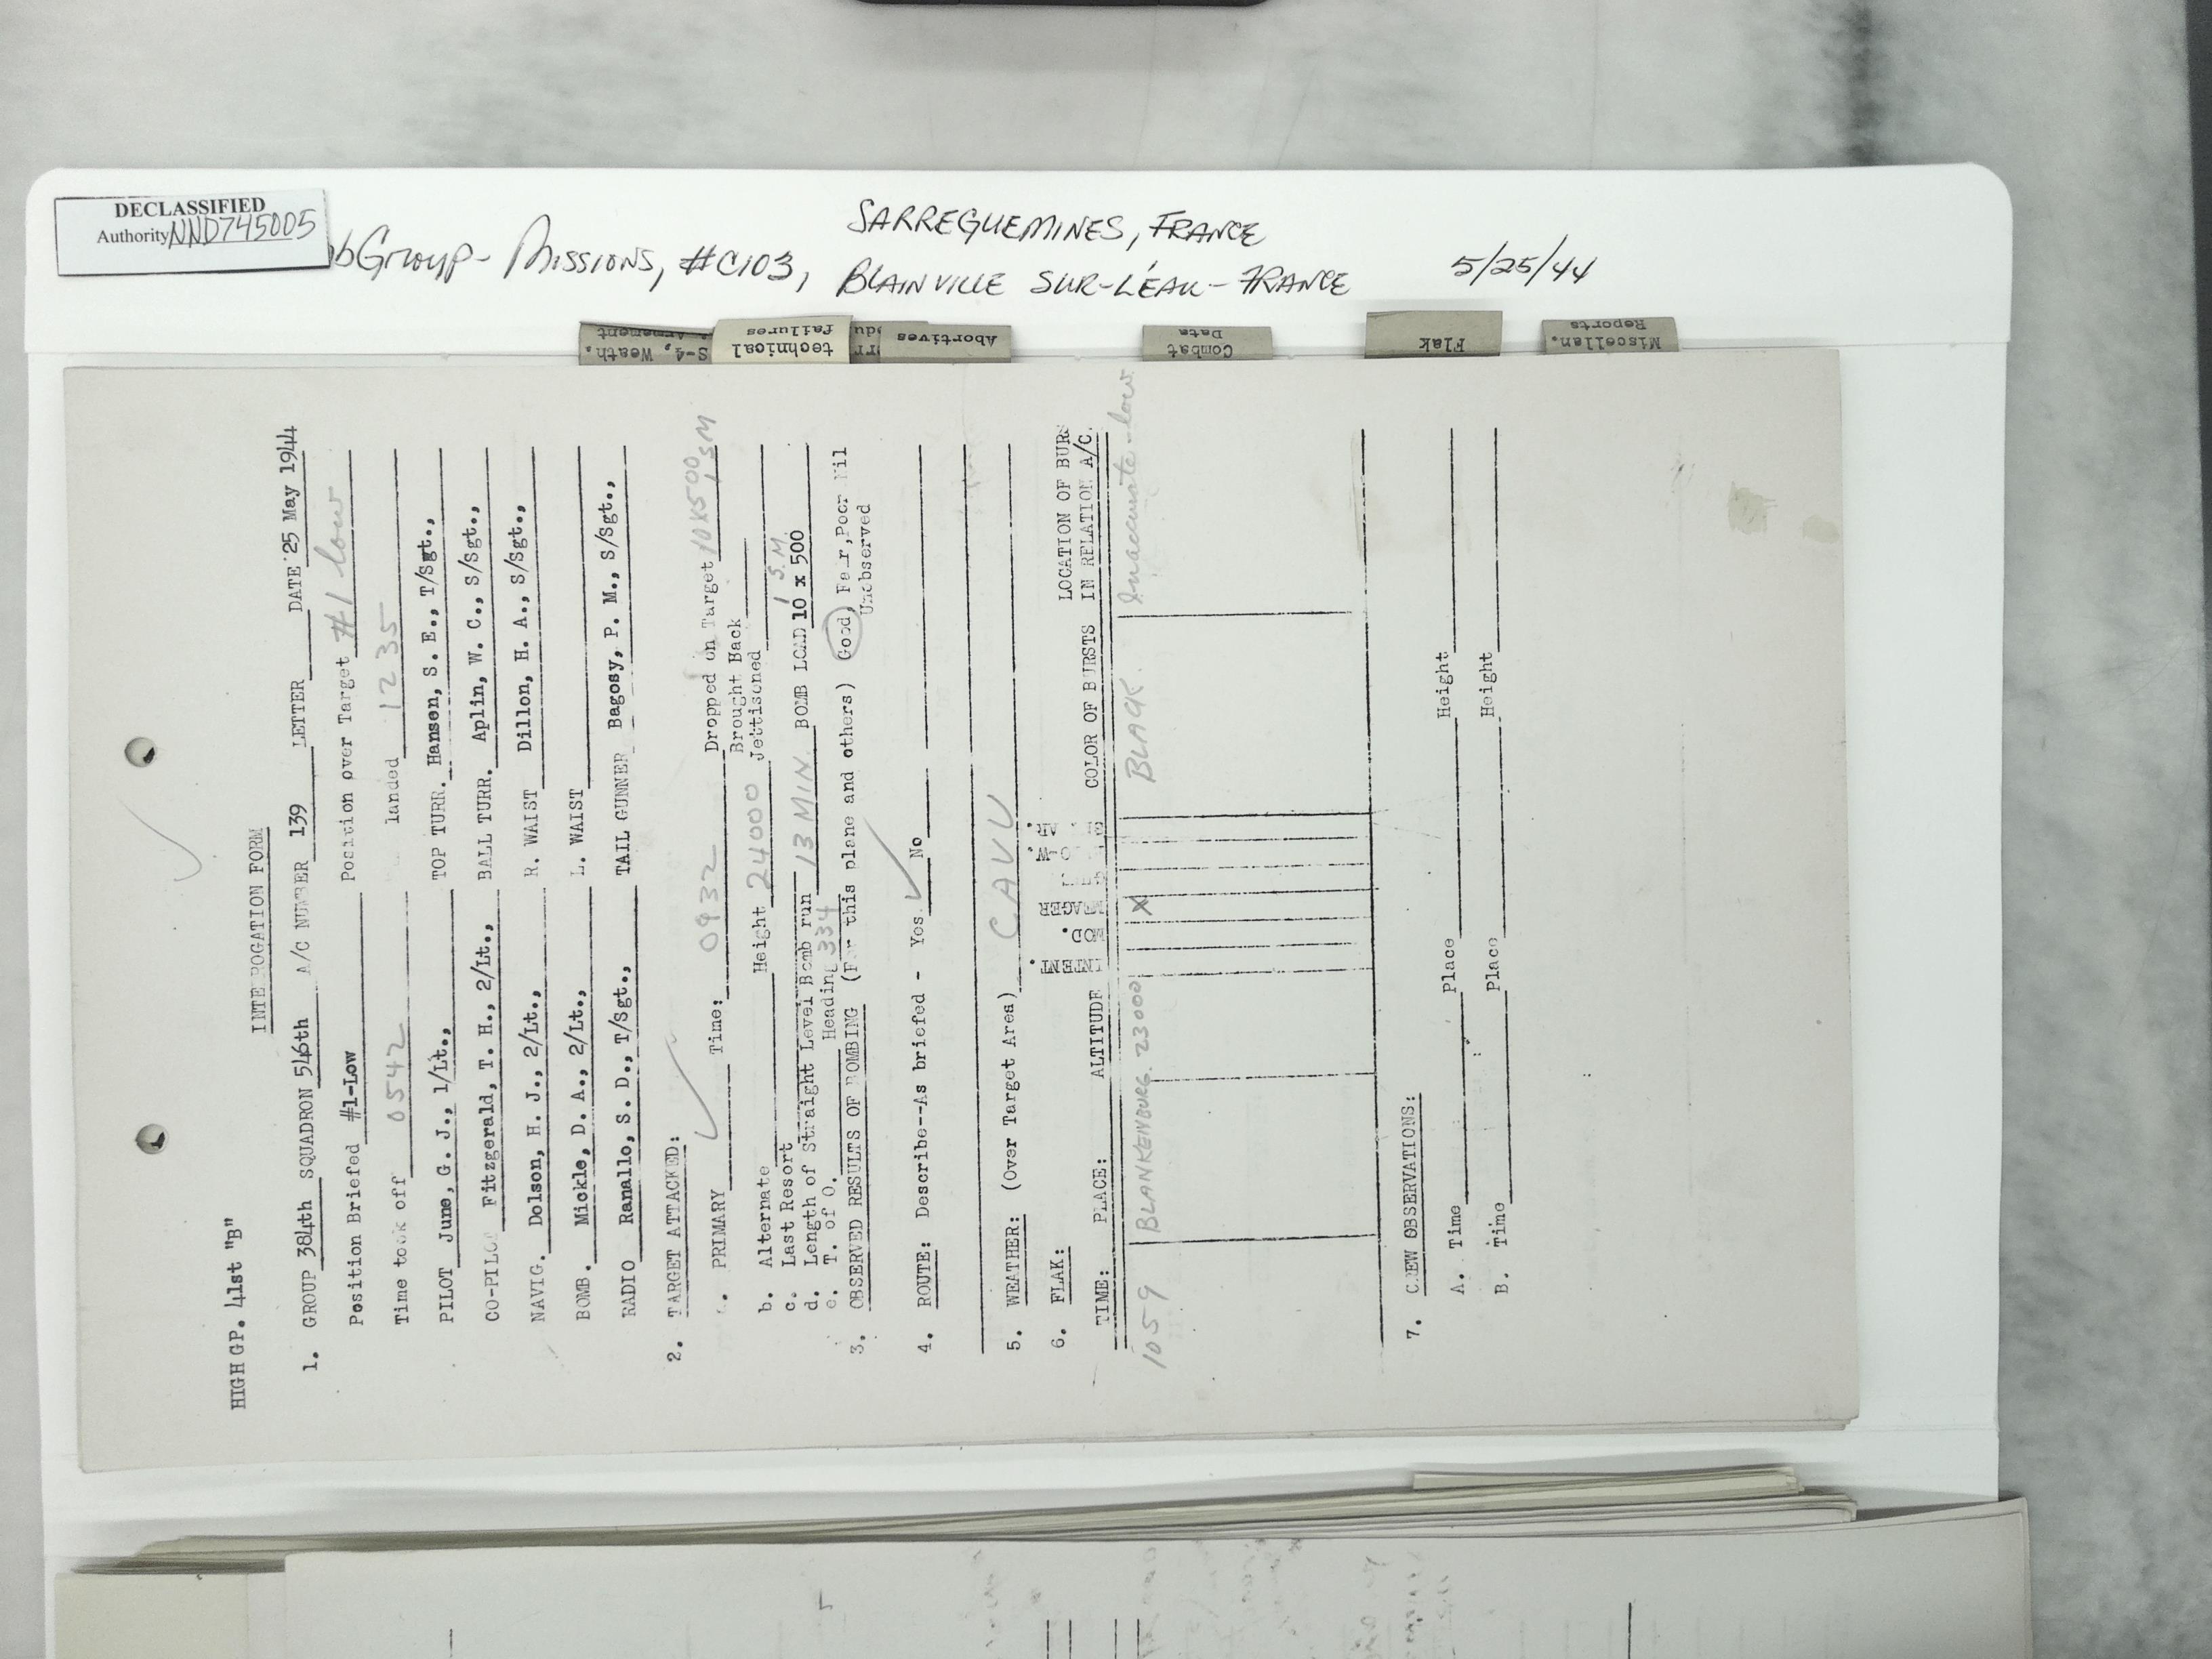 DECLASSIFIED
Authority NND745005
bGroup- Missions, #C103,
SARREGUEMINES, FRANCE
BLAINVILLE SUR-L'EAU-FRANCE
5/25/44
S-4, Weath.
& Armament
technical
failures
Abortives
Combat
Data
Flak
Miscellan.
Reports
HIGH GP. 41st "B"
INTERROGATION FORM
1. GROUP 384th SQUADRON 546th A/C NUMBER 139 LETTER DATE 25 May 1944
Position Briefed #1-Low Position over Target #1 low
Time took off 0542 landed 1235
PILOT June, G. J., 1/Lt., TOP TURR. Hansen, S. E., T/Sgt.,
CO-PILOT Fitzgerald, T. H., 2/Lt., BALL TURR. Aplin, W. C., S/Sgt.,
NAVIG. Dolson, H. J., 2/Lt., R. WAIST Dillon, H. A., S/Sgt.,
BOMB. Mickle, D. A., 2/Lt., L. WAIST
RADIO Ranallo, S. D., T/Sgt., TAIL GUNNER Bagosy, P. M., S/Sgt.,
2. TARGET ATTACKED:
PRIMARY Time: 0932 Dropped on Target 10x500 1 SM
Brought Back
b. Alternate Height 24000 Jettisoned
c. Last Resort 1 S.M.
d. Length of Straight Level Bomb run 13 MIN. BOMB LOAD 10 x 500
e. T. of O. Heading 334
3. OBSERVED RESULTS OF BOMBING (For this plane and others) Good, Fair, Poor Nil
Unobserved
4. ROUTE: Describe--As briefed - Yes No
5. WEATHER: (Over Target Area) CAVU
6. FLAK:
TIME: PLACE: ALTITUDE INTENT. MOD. MEAGER COLOR OF BURSTS LOCATION OF BURS
IN RELATION A/C.
1059 BLANKENBURG. 23000 X BLACK. Inaccurate-low
7. CREW OBSERVATIONS:
A. Time Place Height
B. Time Place Height